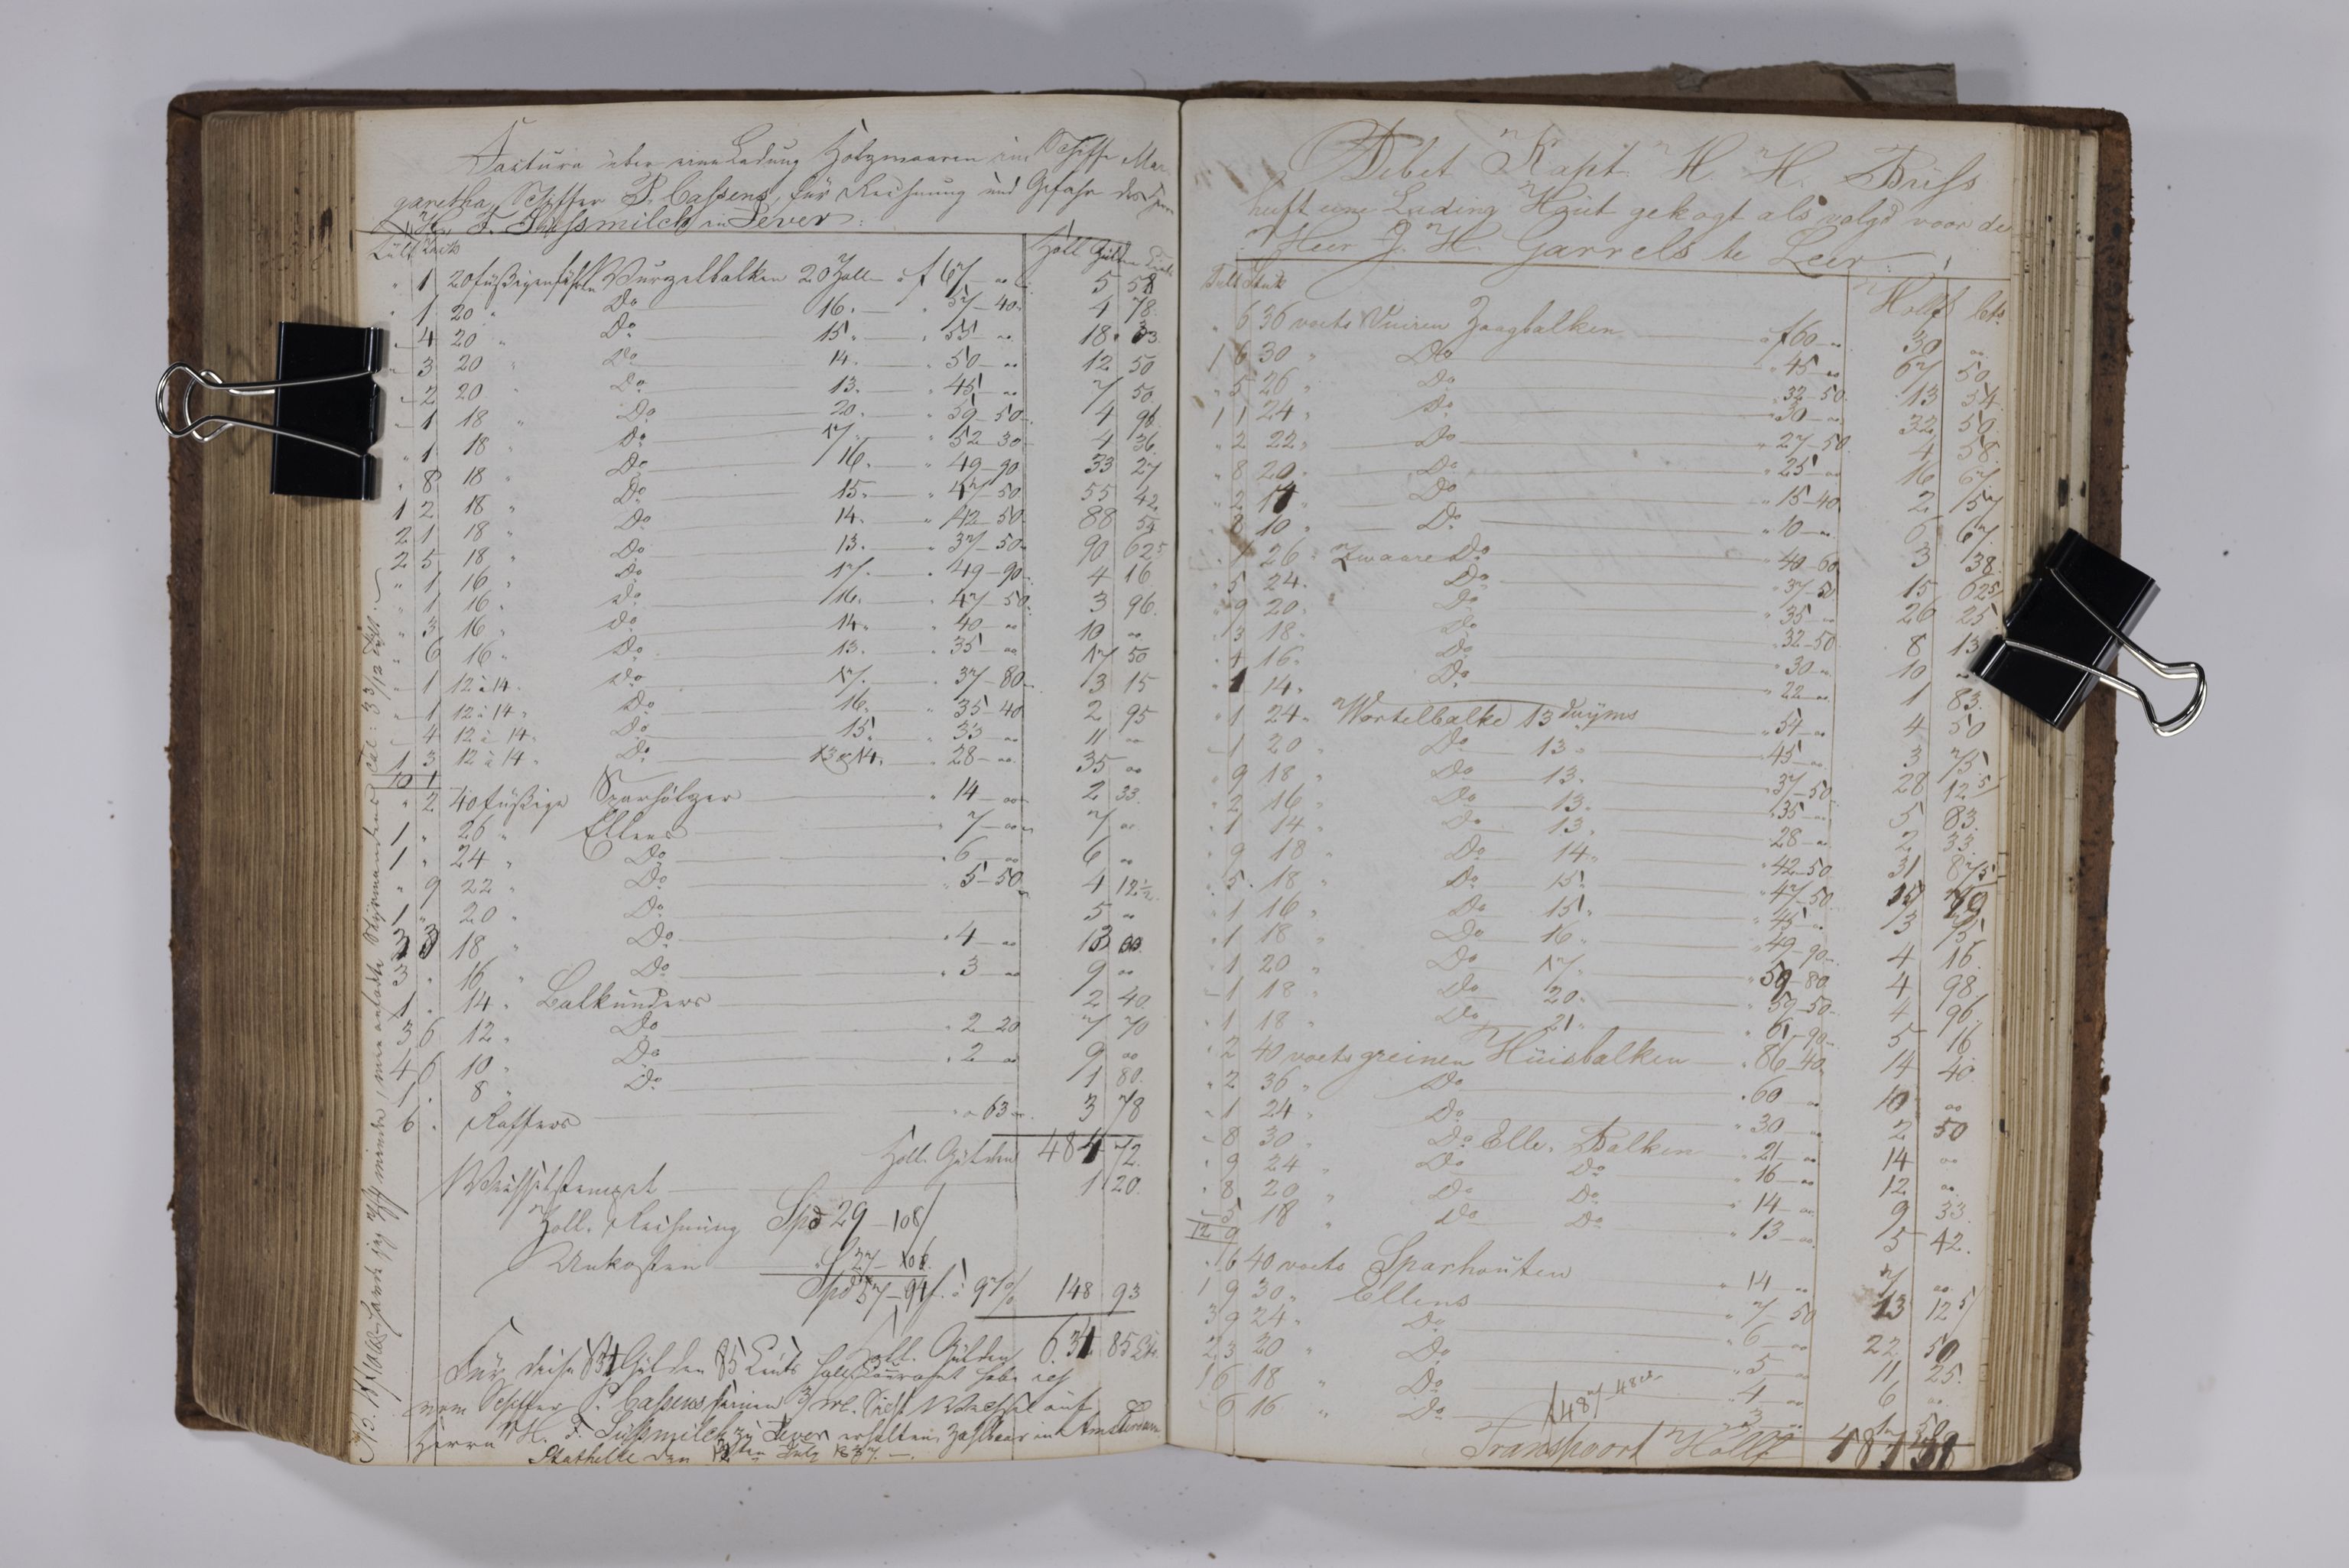 Factura über eine Ladung Holzwaaren im Schiffe Mar-
garetha, Schiffer P. Cassens, für Rechnung und Gefahr des Herrn
H. F. Süssmilch in Jever:
Tült Stck Holl Gulden Cents
" 1 20 füßigen föhrn Wurzelbalken 20 Zoll " f 67 " 5 58
" 1 20 " Do 16 " " 57-40 4 78
" 4 20 " Do 15 " " 55 " 18 33
" 3 20 " Do 14 " " 50 " 12 50
" 2 20 " Do 13 " " 45 " 7 50
" 1 18 " Do 20 " " 59-50 4 96
" 1 18 " Do 17 " " 52-30 4 36
" 8 18 " Do 16 " " 49-90 33 27
1 2 18 " Do 15 " " 47-50 55 42
2 1 18 " Do 14 " " 42-50 88 54
2 5 18 " Do 13 " " 37-50 90 62 5
" 1 16 " Do 17 " " 49-90 4 16
" 1 16 " Do 16 " " 47-50 3 96
" 3 16 " Do 14 " " 40 " 10 "
" 6 16 " Do 13 " " 35 " 17 50
" 1 12 à 14 " Do 17 " " 37-80 3 15
" 1 12 à 14 " Do 16 " " 35-40 2 95
" 4 12 à 14 " Do 15 " " 33 " 11 "
1 3 12 à 14 " Do 13 & 14 " " 28 " 35 "
10 1
" 2 40 füßige Sparhölzer " 14 " 2 33
1 " 26 " Ellens " 7 " 7 "
1 " 24 " Do " 6 " 6 "
" 9 22 " Do " 5-50 4 12½
1 " 20 " Do 5 "
3 3 18 " Do " 4 " 13 "
3 " 16 " Do " 3 " 9 "
1 " 14 " Balkunders 2 40
3 6 12 " Do " 2-20 7 70
4 6 10 " Do " 2 " 9 "
1 " 8 " Do 1 80
6 " Raffters " " 63 " 3 78
Holl. Gulden 484 72
Wechselstempel 1 20
Zoll. Rechnung Spd 29-108
Unkosten " 27-106
Spd 57-94 f. à 97% 148 93
Holl. Gulden 634 85 Cts.
Für diese 634 Gulden 85 Cents holl. Courant habe ich
vom Schiffer P. Cassens seinen Wechsel auf
Herrn H. F. Süssmilch zu Jever erhalten, zahlbar in Amsterdam
Stathelle den July 1837.
Debet Kapt. H. H. Buss
heeft eene Lading Hout gekogt als volgd voor de
Heer J. H. Garrels te Leer
Tult Stuk Hollf Cts.
" 6 36 voets Vuiren Zaagbalken " f 60 " 30 "
1 6 30 " Do " 45 " 67 50
" 5 26 " Do " 32-50 13 54
1 1 24 " Do " 30 " 32 50
" 2 22 " Do " 27-50 4 58
" 8 20 " Do " 25 " 16 67
" 2 14 " Do " 15-40 2 57
" 8 10 " Do " 10 " 6 67
" 1 26 " Zwaare Do " 40-60 3 38
" 5 24 " Do " 37-50 15 62 5
" 9 20 " Do " 35 " 26 25
" 3 18 " Do " 32-50 8 13
" 4 16 " Do " 30 " 10 "
" 1 14 " Do " 22 " 1 83
" 1 24 " Wortelbalke 13 duÿms " 54 " 4 50
" 1 20 " Do 13 " " 45 " 3 75
" 9 18 " Do 13 " " 37-50 28 12 5
" 2 16 " Do 13 " " 35 " 5 83
" 1 14 " Do 13 " " 28 " 2 33
" 9 18 " Do 14 " " 42-50 31 87 5
" 5 18 " Do 15 " " 47-50 19 79
" 1 16 " Do 15 " " 45 " 3 75
" 1 18 " Do 16 " " 49-90 4 16
" 1 20 " Do 17 " " 59-80 4 98
" 1 18 " Do 20 " " 59-50 4 96
" 1 18 " Do 21 " " 61-90 5 16
" 2 40 voets greinen Huisbalken " 86-40 14 40
" 2 36 " Do " 60 " 10 "
" 1 24 " Do " 30 " 2 50
" 8 30 " Do Elle. Balken " 21 " 14 "
" 9 24 " Do Do " 16 " 12 "
" 8 20 " Do Do " 14 " 9 33
" 5 18 " Do Do " 13 " 5 42
12 9
" 6 40 voets Sparhouten " 14 " 7 "
1 9 30 " Ellens " 7 50 13 12 5
3 9 24 " Do " 6 " 22 50
2 3 20 " Do " 5 " 11 25
1 6 18 " Do " 4 " 6 "
" 6 16 " Do " 3 " 1 50
f 487-48 cts
Transpoort Hollf 487 48